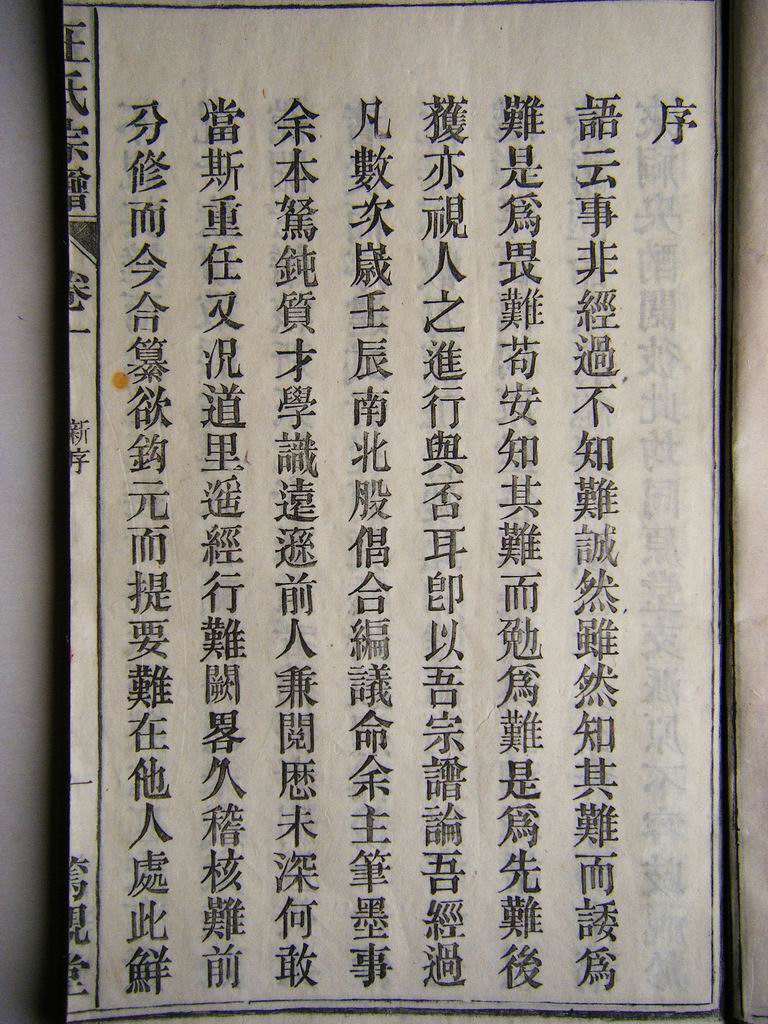 序
語云事非經過不知難誠然雖然知其難而諉爲
難是爲畏難苟安知其難而勉爲難是爲先難後
獲亦視人之進行與否耳卽以吾宗譜論吾經過
凡數次歲壬辰南北股倡合編議命余主筆墨事
余本駑鈍質才學識遠遜前人兼閱歷未深何敢
當斯重任又况道里遥經行難闕畧久稽核難前
分修而今合纂欲鈎元而提要難在他人處此鮮
王氏宗譜
卷一
新序
一
篤親堂